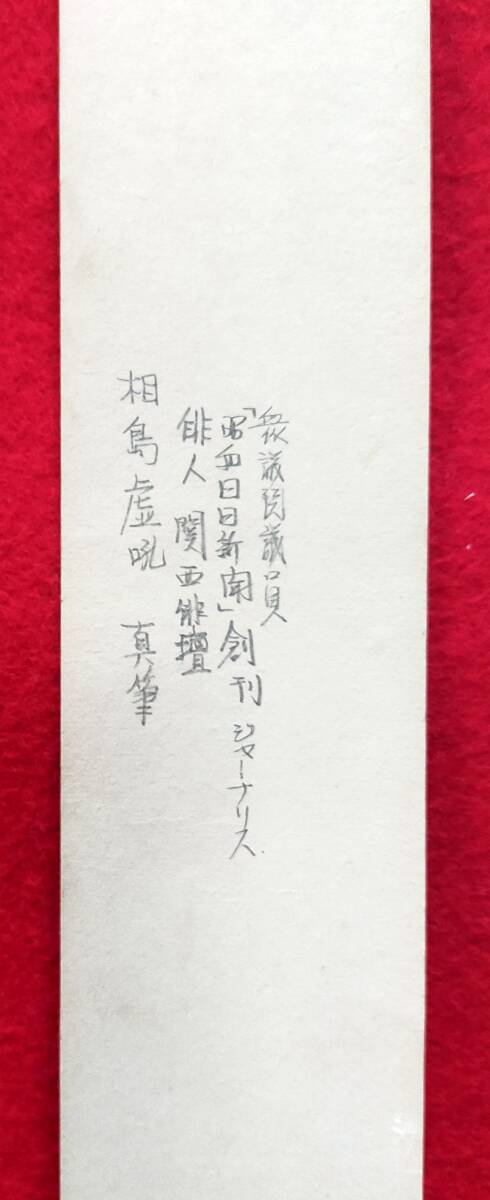 衆議院議員
日日新聞」創刊 ジャーナリス
俳人 関西俳壇
相島虚吼 真筆